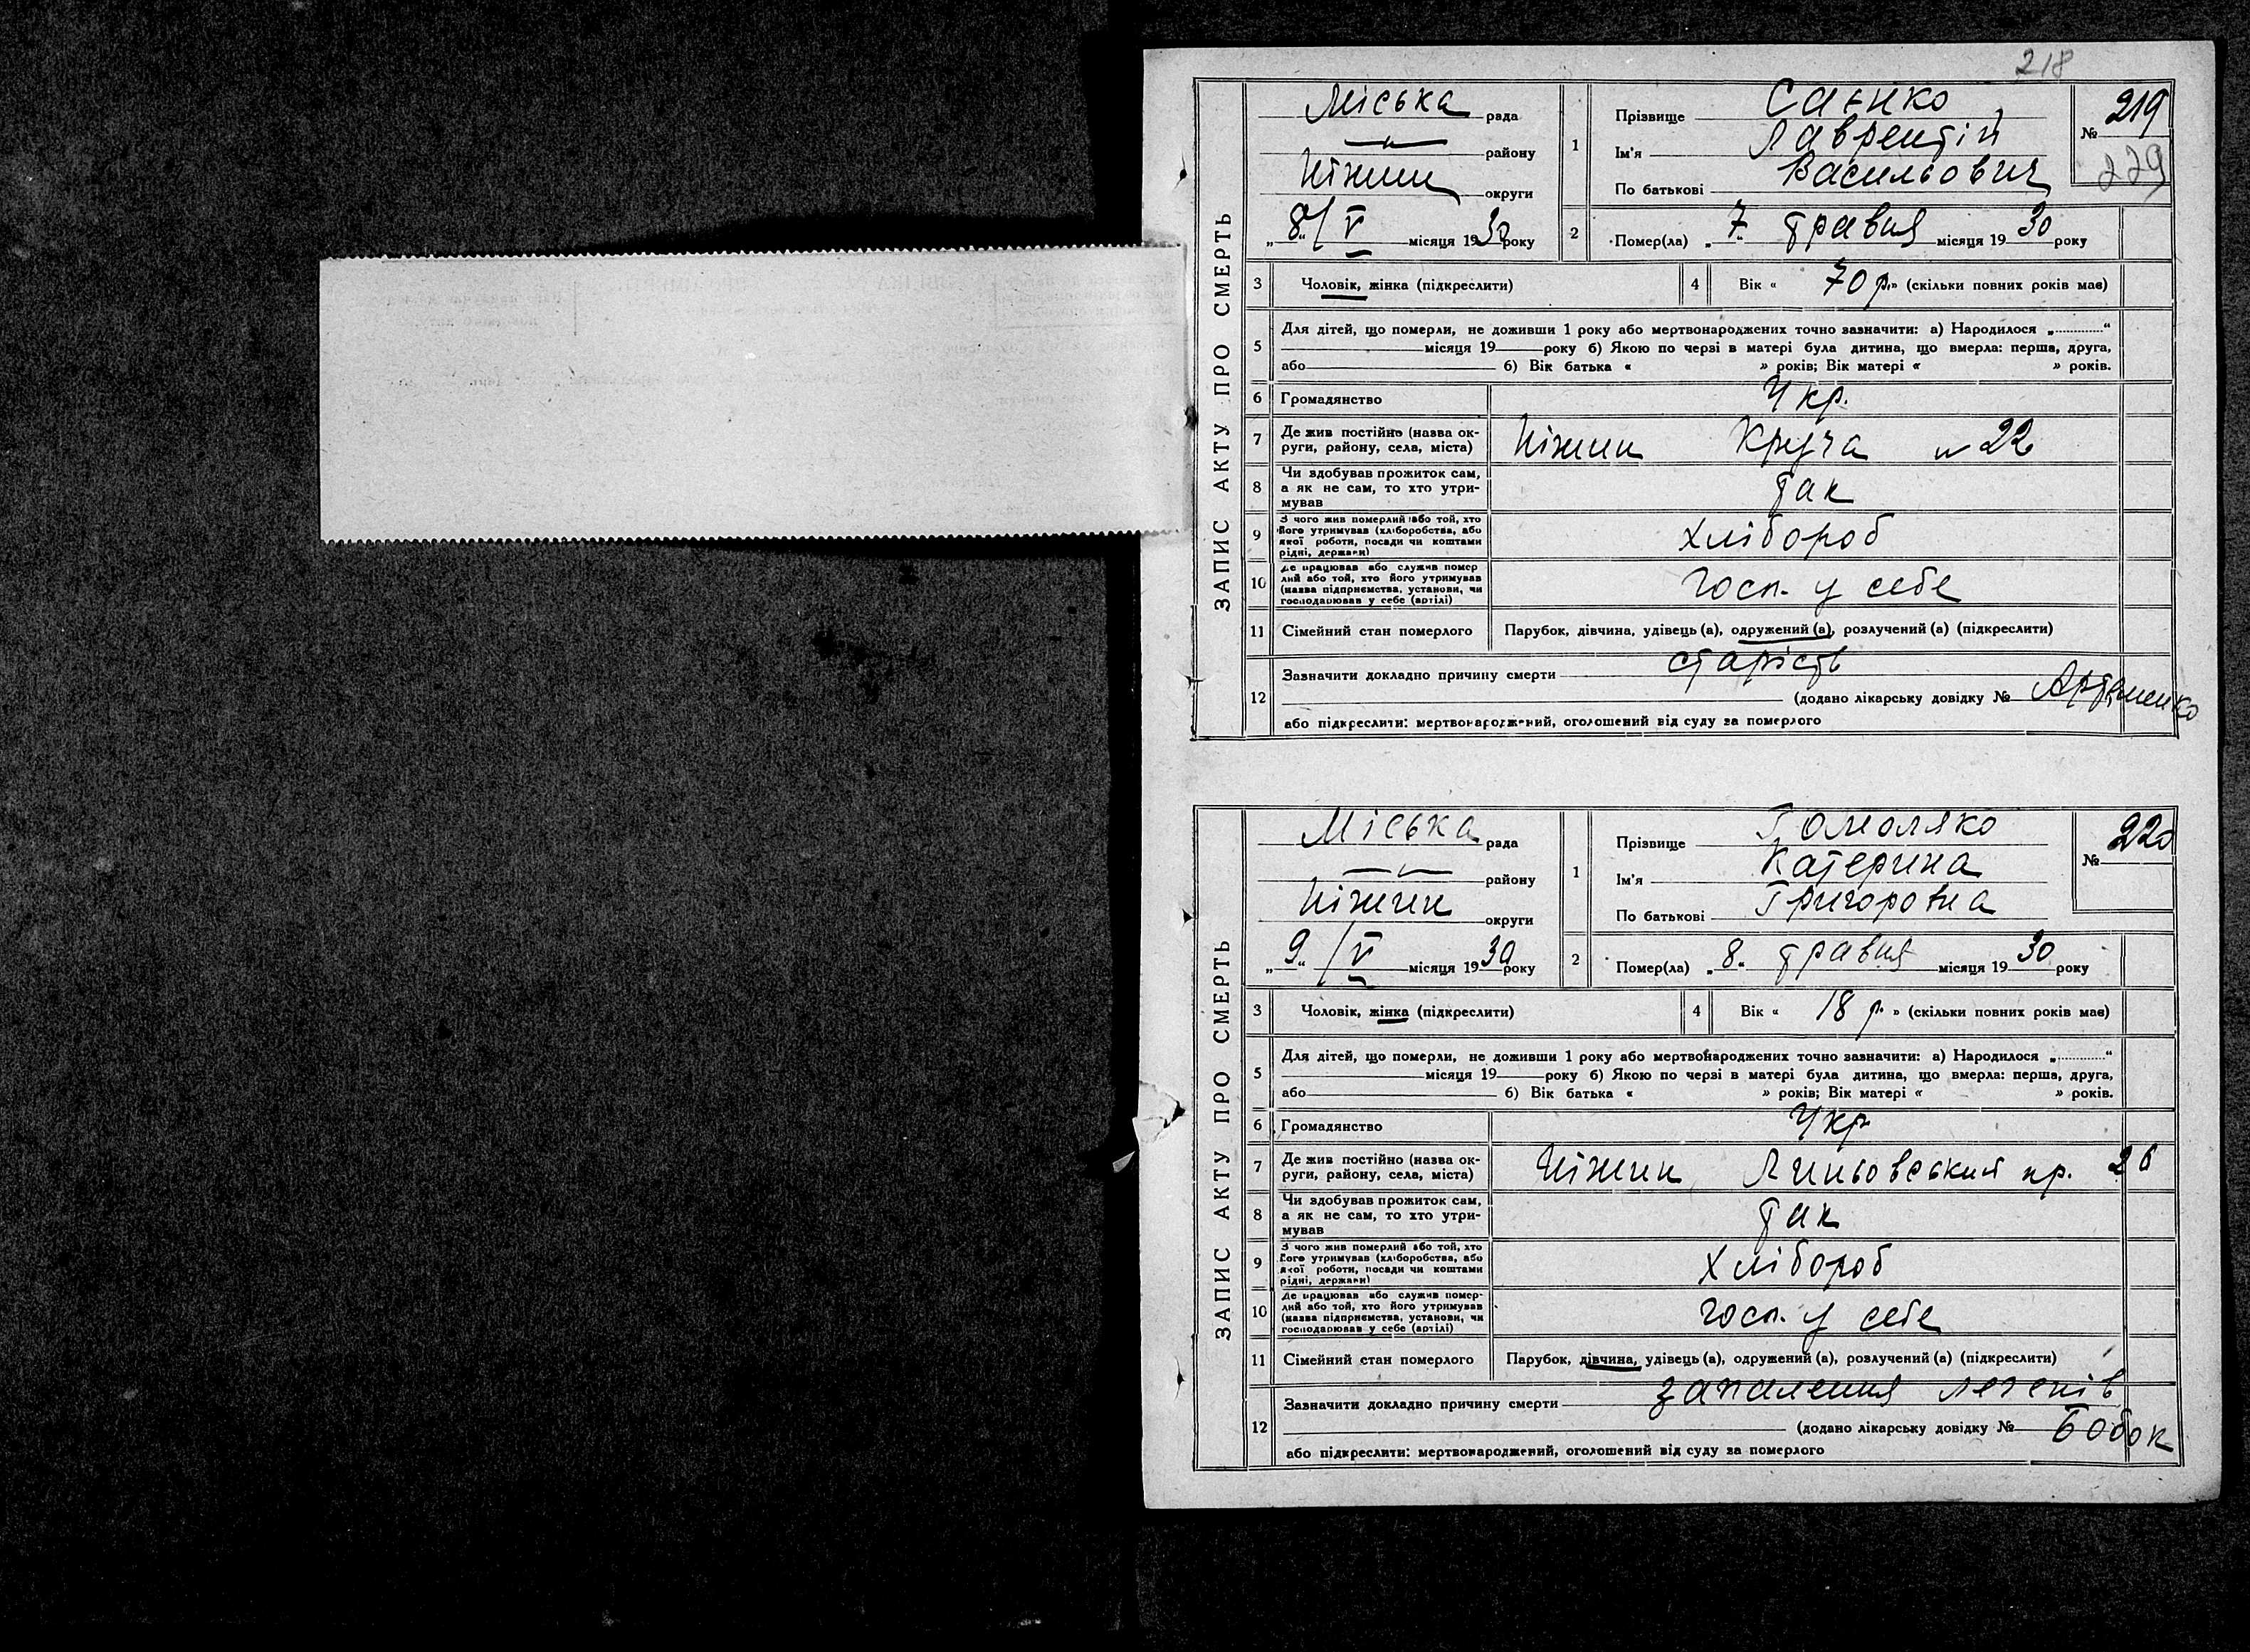 218
ЗАПИС АКТУ ПРО СМЕРТЬ
Міська рада
району
Ніжин округи
„8“/V місяця 1930 року
1 Прізвище Саєнко
Ім'я Лаврентій
По батькові Васильович
№ 219
229
2 Помер(ла) „7“ травня місяця 1930 року
3 Чоловік, жінка (підкреслити)
4 Вік « 70 р.» (скільки повних років має)
5 Для дітей, що померли, не доживши 1 року або мертвонароджених точно зазначити: а) Народилося „............“
місяця 19 року б) Якою по черзі в матері була дитина, що вмерла: перша, друга,
або б) Вік батька « » років; Вік матері « » років.
6 Громадянство Укр.
7 Де жив постійно (назва ок-
руги, району, села, міста) Ніжин Круча № 22
8 Чи здобував прожиток сам,
а як не сам, то хто утри-
мував так
9 З чого жив померлий або той, хто
його утримував (хліборобства, або
якої роботи, посади чи коштами
рідні, держави) хлібороб
10 Де працював або служив помер
лий або той, хто його утримував
(назва підприємства, установи, чи
господарював у себе (артілі) госп. у себе
11 Сімейний стан померлого Парубок, дівчина, удівець (а), одружений (а), розлучений (а) (підкреслити)
12 Зазначити докладно причину смерти старість
(додано лікарську довідку №
або підкреслити: мертвонароджений, оголошений від суду за померлого
ЗАПИС АКТУ ПРО СМЕРТЬ
Міська рада
району
Ніжин округи
„9“/V місяця 1930 року
1 Прізвище Гомоляко
Ім'я Катерина
По батькові Григоровна
№ 220
2 Помер(ла) „8“ травня місяця 1930 року
3 Чоловік, жінка (підкреслити)
4 Вік « 18 р. » (скільки повних років має)
5 Для дітей, що померли, не доживши 1 року або мертвонароджених точно зазначити: а) Народилося „............“
місяця 19 року б) Якою по черзі в матері була дитина, що вмерла: перша, друга,
або б) Вік батька « » років; Вік матері « » років.
6 Громадянство Укр
7 Де жив постійно (назва ок-
руги, району, села, міста) Ніжин пр. 26
8 Чи здобував прожиток сам,
а як не сам, то хто утри-
мував так
9 З чого жив померлий або той, хто
його утримував (хліборобства, або
якої роботи, посади чи коштами
рідні, держави) хлібороб
10 Де працював або служив помер-
лий або той, хто його утримував
(назва підприємства, установи, чи
господарював у себе (артілі) госп. у себе
11 Сімейний стан померлого Парубок, дівчина, удівець (а), одружений (а), розлучений (а) (підкреслити)
12 Зазначити докладно причину смерти запалення легенів
(додано лікарську довідку № Бобок
або підкреслити: мертвонароджений, оголошений від суду за померлого